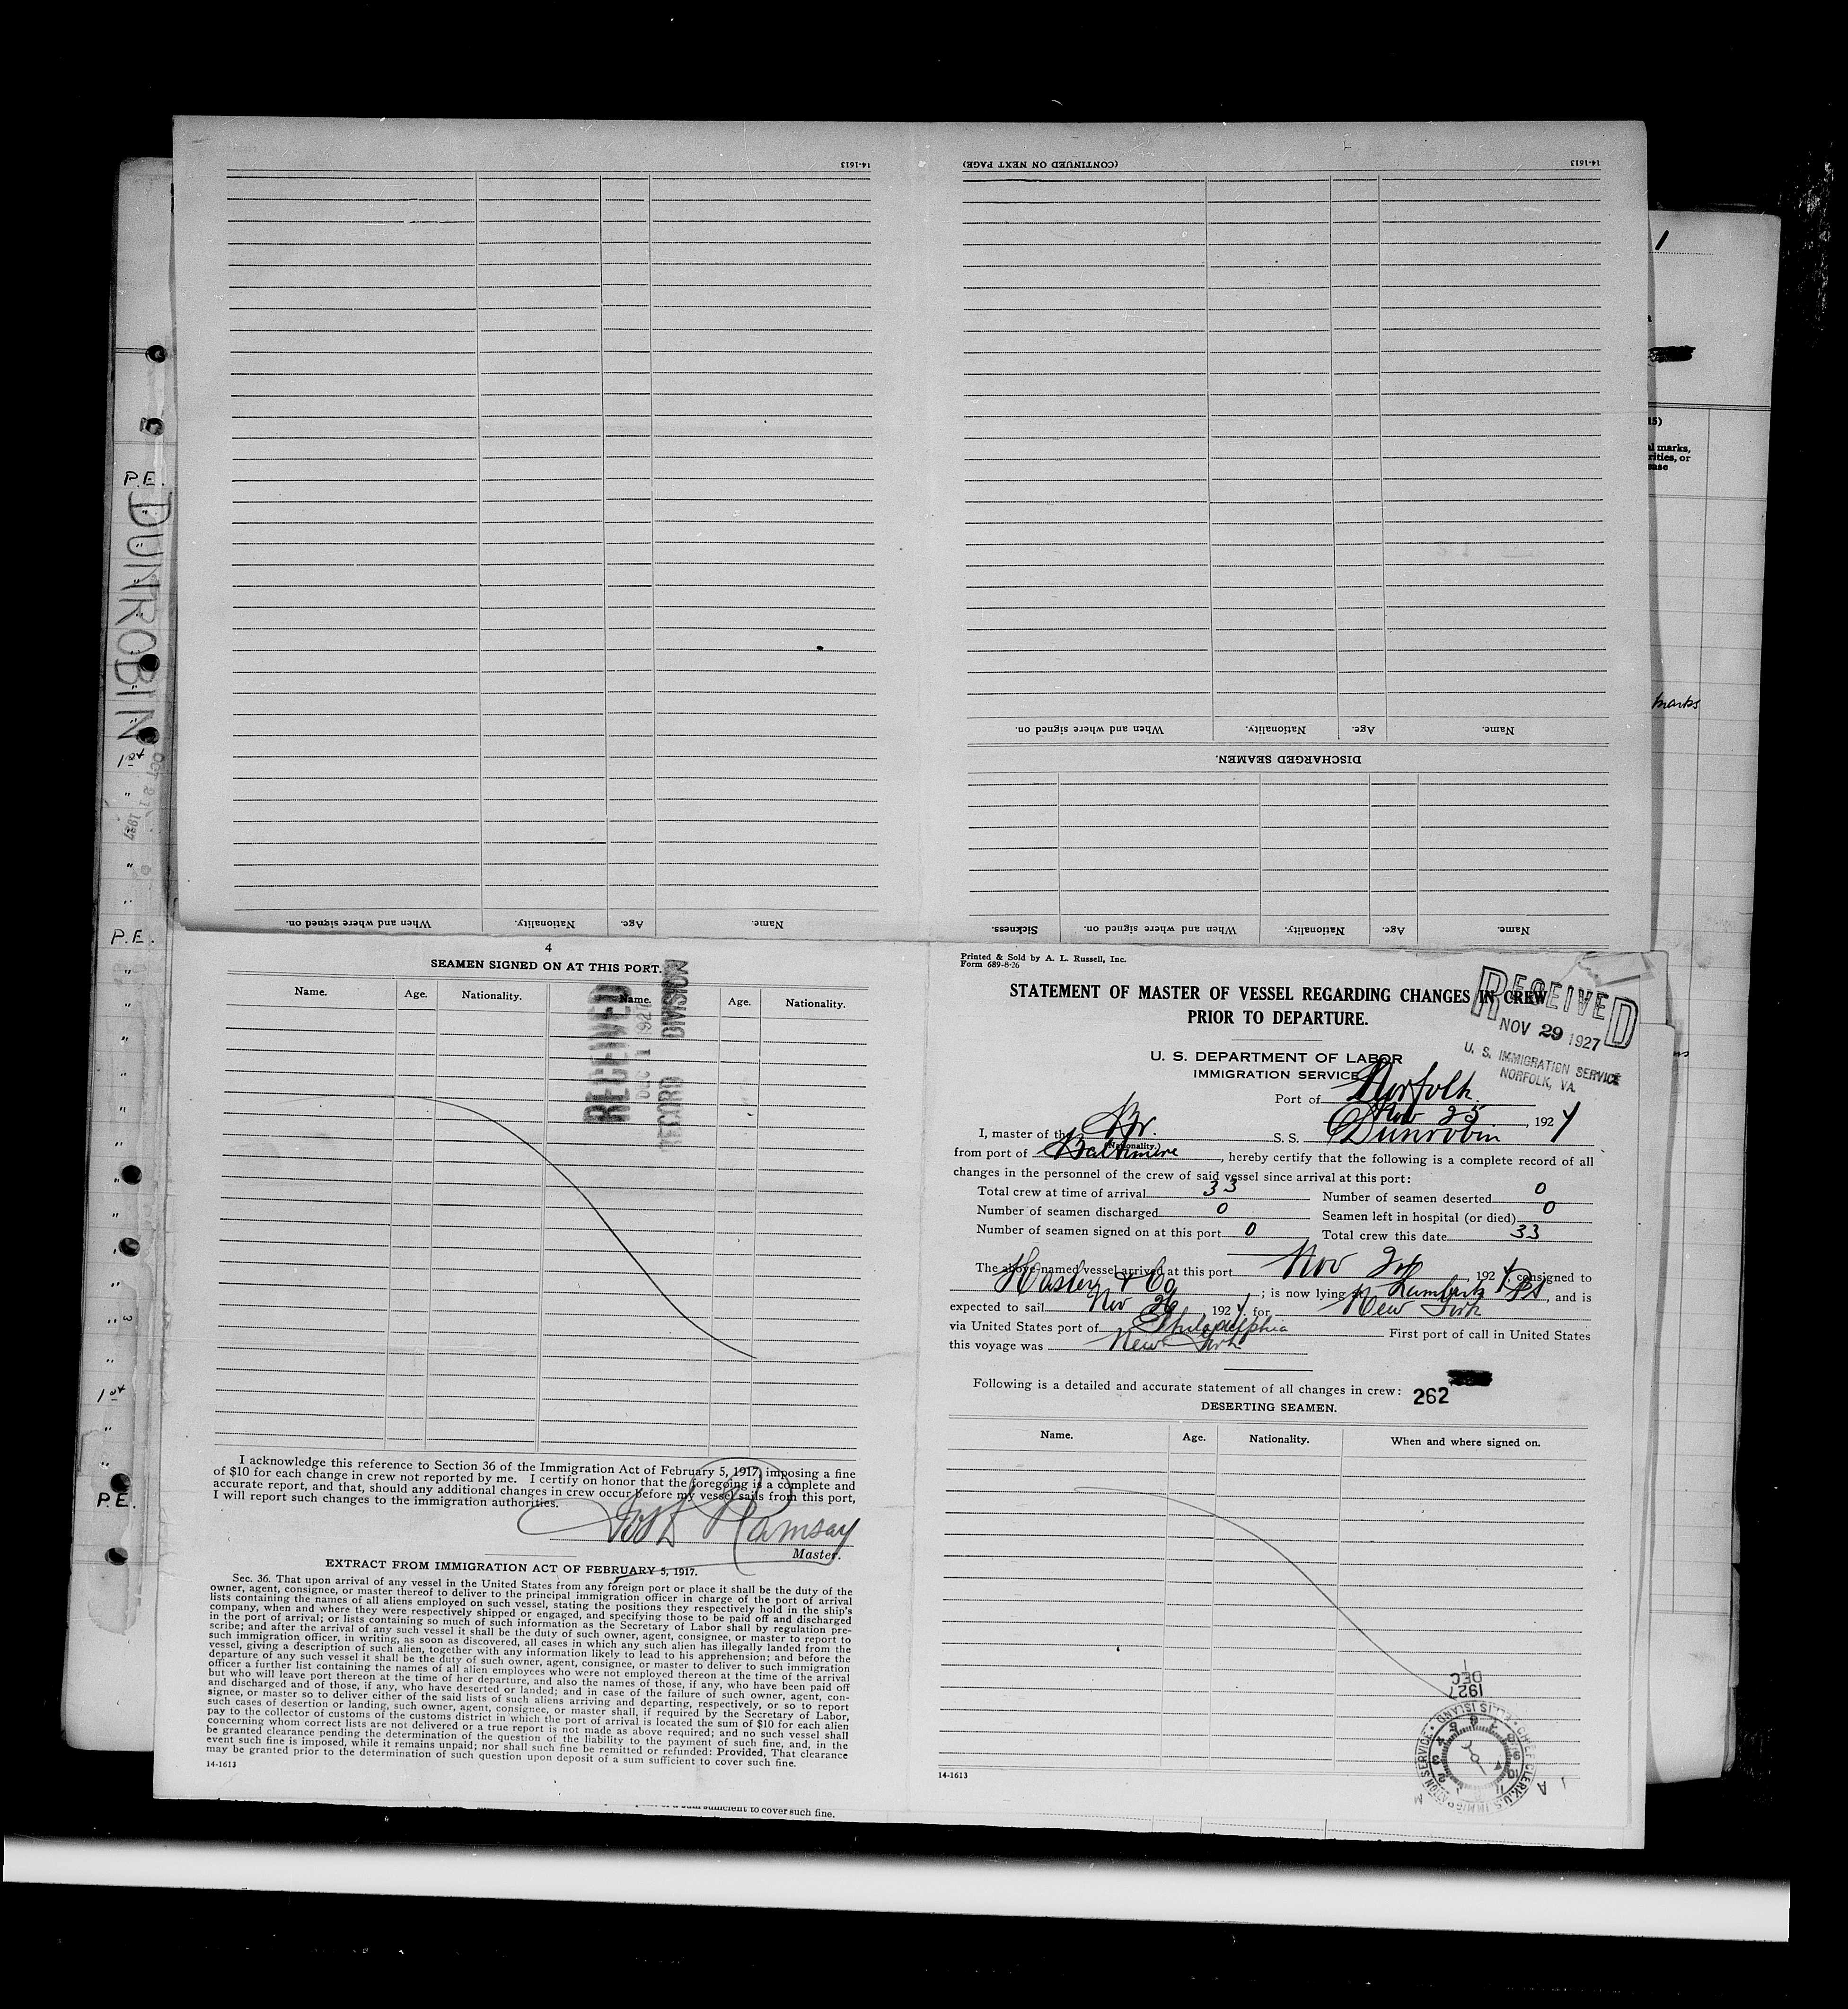 14-1613
(CONTINUED ON NEXT PAGE)
14-1613
When and where signed on. Nationality. Age. Name.
DISCHARGED SEAMEN.
When and where signed on. Nationality. Age. Name.
Sickness. When and where signed on. Nationality. Age. Name.
P.E.
DUNROBIN
1st
OCT 21 1927
P.E.
3
1st
P.E.
1
15)
al marks,
rities, or
ease
marks
4
SEAMEN SIGNED ON AT THIS PORT.
Name. Age. Nationality. Name. Age. Nationality.
RECEIVED
DEC 1 1927
RECORD DIVISION
I acknowledge this reference to Section 36 of the Immigration Act of February 5, 1917, imposing a fine
of $10 for each change in crew not reported by me. I certify on honor that the foregoing is a complete and
accurate report, and that, should any additional changes in crew occur before my vessel sails from this port,
I will report such changes to the immigration authorities.
Ramsay
Master.
EXTRACT FROM IMMIGRATION ACT OF FEBRUARY 5, 1917.
Sec. 36. That upon arrival of any vessel in the United States from any foreign port or place it shall be the duty of the
owner, agent, consignee, or master thereof to deliver to the principal immigration officer in charge of the port of arrival
lists containing the names of all aliens employed on such vessel, stating the positions they respectively hold in the ship's
company, when and where they were respectively shipped or engaged, and specifying those to be paid off and discharged
in the port of arrival; or lists containing so much of such information as the Secretary of Labor shall by regulation pre-
scribe; and after the arrival of any such vessel it shall be the duty of such owner, agent, consignee, or master to report to
such immigration officer, in writing, as soon as discovered, all cases in which any such alien has illegally landed from the
vessel, giving a description of such alien, together with any information likely to lead to his apprehension; and before the
departure of any such vessel it shall be the duty of such owner, agent, consignee, or master to deliver to such immigration
officer a further list containing the names of all alien employees who were not employed thereon at the time of the arrival
but who will leave port thereon at the time of her departure, and also the names of those, if any, who have been paid off
and discharged and of those, if any, who have deserted or landed; and in case of the failure of such owner, agent, con-
signee, or master so to deliver either of the said lists of such aliens arriving and departing, respectively, or so to report
such cases of desertion or landing, such owner, agent, consignee, or master shall, if required by the Secretary of Labor,
pay to the collector of customs of the customs district in which the port of arrival is located the sum of $10 for each alien
concerning whom correct lists are not delivered or a true report is not made as above required; and no such vessel shall
be granted clearance pending the determination of the question of the liability to the payment of such fine, and, in the
event such fine is imposed, while it remains unpaid; nor shall such fine be remitted or refunded: Provided, That clearance
may be granted prior to the determination of such question upon deposit of a sum sufficient to cover such fine.
14-1613
of a sum sufficient to cover such fine.
Printed & Sold by A. L. Russell, Inc.
Form 689-8-26
STATEMENT OF MASTER OF VESSEL REGARDING CHANGES IN CREW
PRIOR TO DEPARTURE.
RECEIVED
NOV 29 1927
U. S. IMMIGRATION SERVICE
NORFOLK, VA.
U. S. DEPARTMENT OF LABOR
IMMIGRATION SERVICE
Port of Norfolk
Nov 25, 1927
I, master of the Br. S. S. Dunrobin
(Nationality.)
from port of Baltimore, hereby certify that the following is a complete record of all
changes in the personnel of the crew of said vessel since arrival at this port:
Total crew at time of arrival 33 Number of seamen deserted 0
Number of seamen discharged 0 Seamen left in hospital (or died) 0
Number of seamen signed on at this port 0 Total crew this date 33
The above named vessel arrived at this port Nov 24, 1927, consigned to
Hasler & Co; is now lying at Lamberts Pt, and is
expected to sail Nov 26, 1927, for New York
via United States port of Philadelphia First port of call in United States
this voyage was New York
Following is a detailed and accurate statement of all changes in crew:
262
DESERTING SEAMEN.
Name. Age. Nationality. When and where signed on.
1927
DEC
1
CHIEF CLERK, U.S. IMMIGRATION SERVICE • ELLIS ISLAND •
A M
14-1613